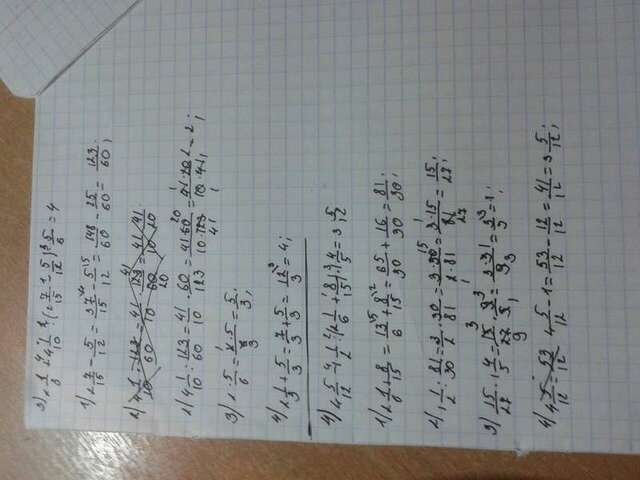 2 1/3 + 4 1/10 : (2 7/15 - 5/12) · 5/6 = 4
1) 2 7/15 - 5/12 = 37/15 - 5/12 = 148/60 - 25/60 = 123/60;
2) 4 1/10 : 123/60 = 41/10 · 60/123 = 41·60/10·123 = 2;
3) 2 · 5/6 = 5/3;
4) 2 1/3 + 5/3 = 7/3 + 5/3 = 12/3 = 4;
4 5/12 - 1 1/2 : (2 1/6 + 8/15) · 1 4/5 = 3 5/12
1) 2 1/6 + 8/15 = 13/6 + 8/15 = 65/30 + 16/30 = 81/30;
2) 1 1/2 : 81/30 = 3/2 · 30/81 = 3·30/2·81 = 3·15/81 = 15/27;
3) 15/27 · 1 4/5 = 15/27 · 9/5
4) 4 5/12 - 1 = 53/12 - 12/12 = 41/12 = 3 5/12;